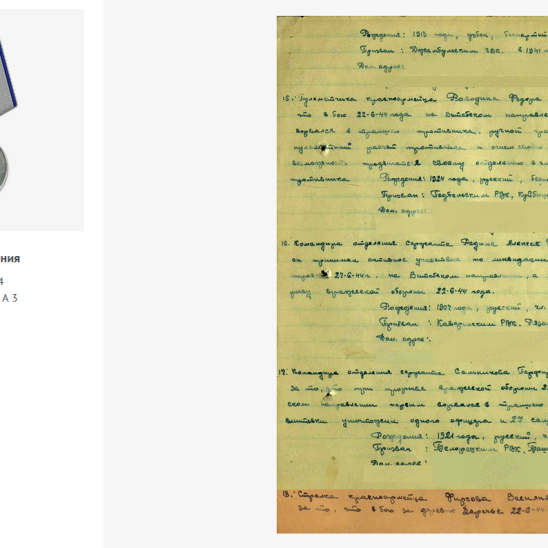 ния
4
А 3
Рождения: 1913 года, узбек, беспартий
Призван: Джамбульским ГВК. в 1941 г
Дом. адрес:
15. Пулеметчика красноармейца Вагодика Федора
что в бою 22-6-44 года на Витебском направле
ворвался в траншею противника, ручной гра
пулеметный расчет противника и огнем своего
возможность продвигаться своему отделению в
противника Рождения: 1924 года, русский, бесп
Призван: РВК,
Дом. адрес:
16. Командира отделения сержанта Федина Алексея
он принимал активное участие по ликвидации
27-6-44 г. на Витебском направлении, а
вражеской обороны 22-6-44 года.
Рождения: 1907 года, русский, чл.
Призван: РВК, Ряза
Дом. адрес:
17. Командира отделения сержанта Сальникова
за то, что при прорыве вражеской обороны 22
ском направлении первым ворвался в траншею
винтовки уничтожил одного офицера и 27 сол
Рождения: 1921 года, русский, ч
Призван: Белорецким РВК, Баш
Дом. адрес:
18. Стрелка красноармейца Фирсова Василия
за то, что в бою за деревню Заречье 22-6-44